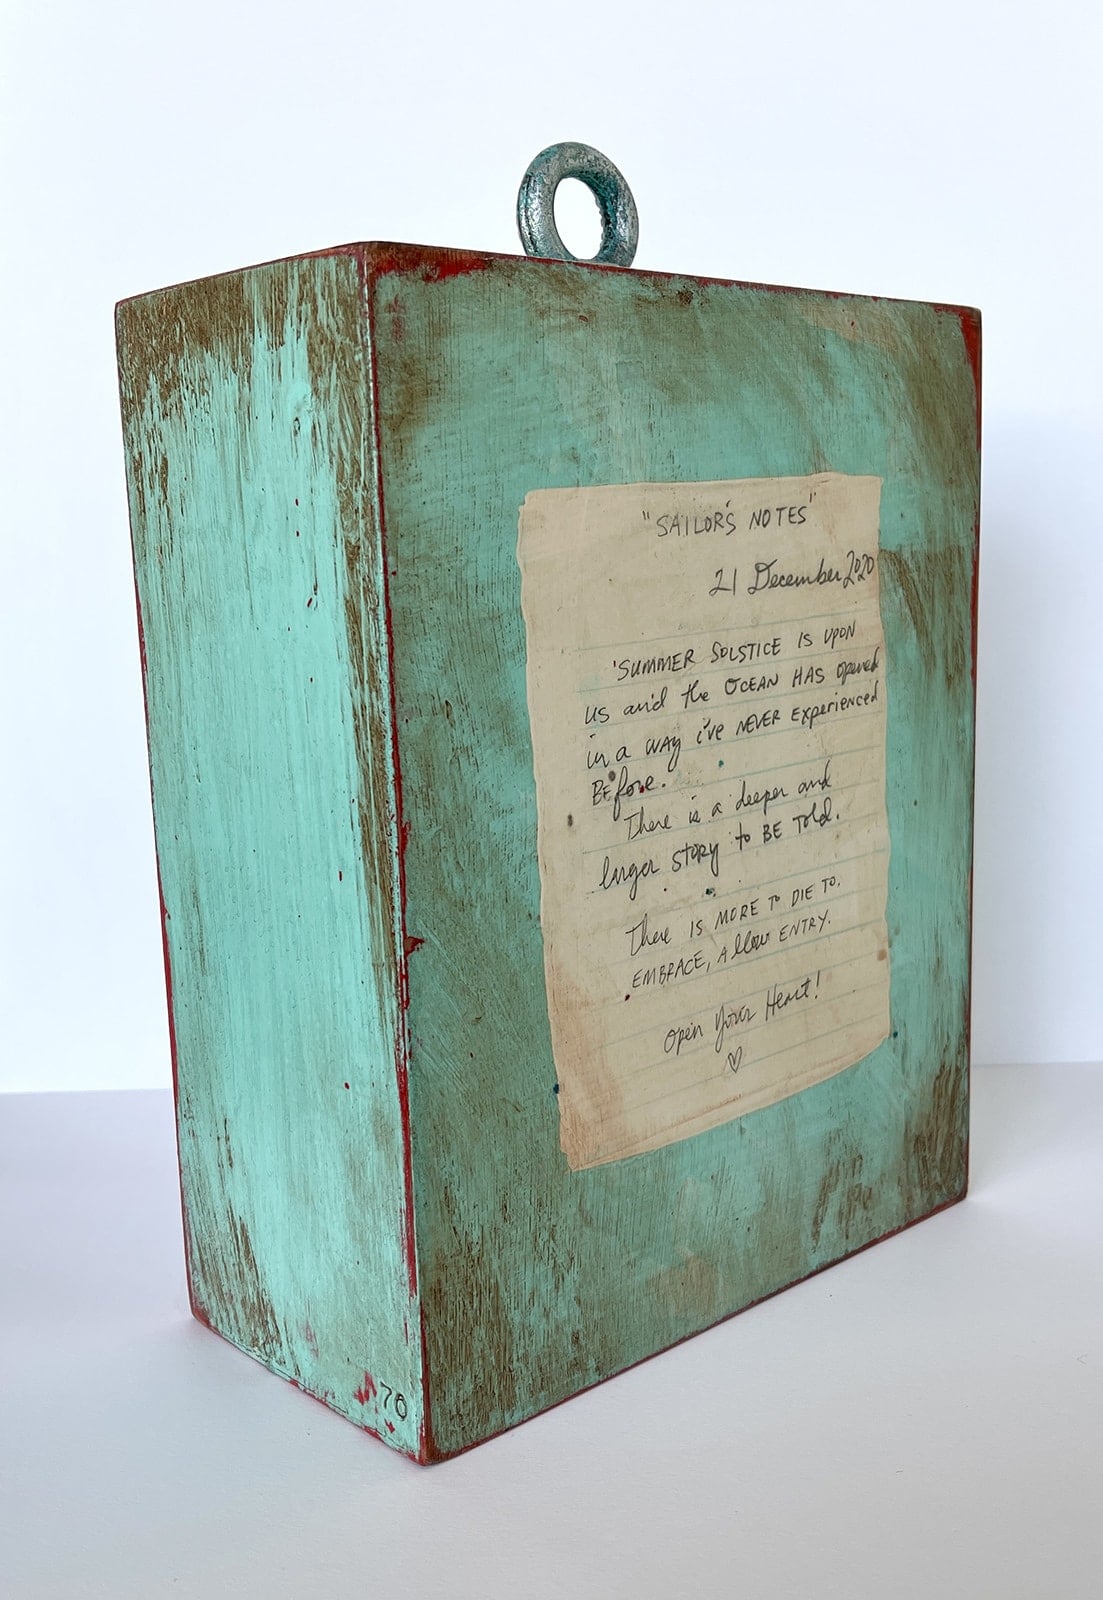 "SAILOR'S NOTES"
21 December 2020
'SUMMER SOLSTICE IS UPON
US and the OCEAN HAS opened
in a WAY i've NEVER Experienced
BEfore.
There is a deeper and
larger STORY to BE Told.
There IS MORE TO DIE TO.
EMBRACE, Allow ENTRY.
Open Your Heart!
♡
76